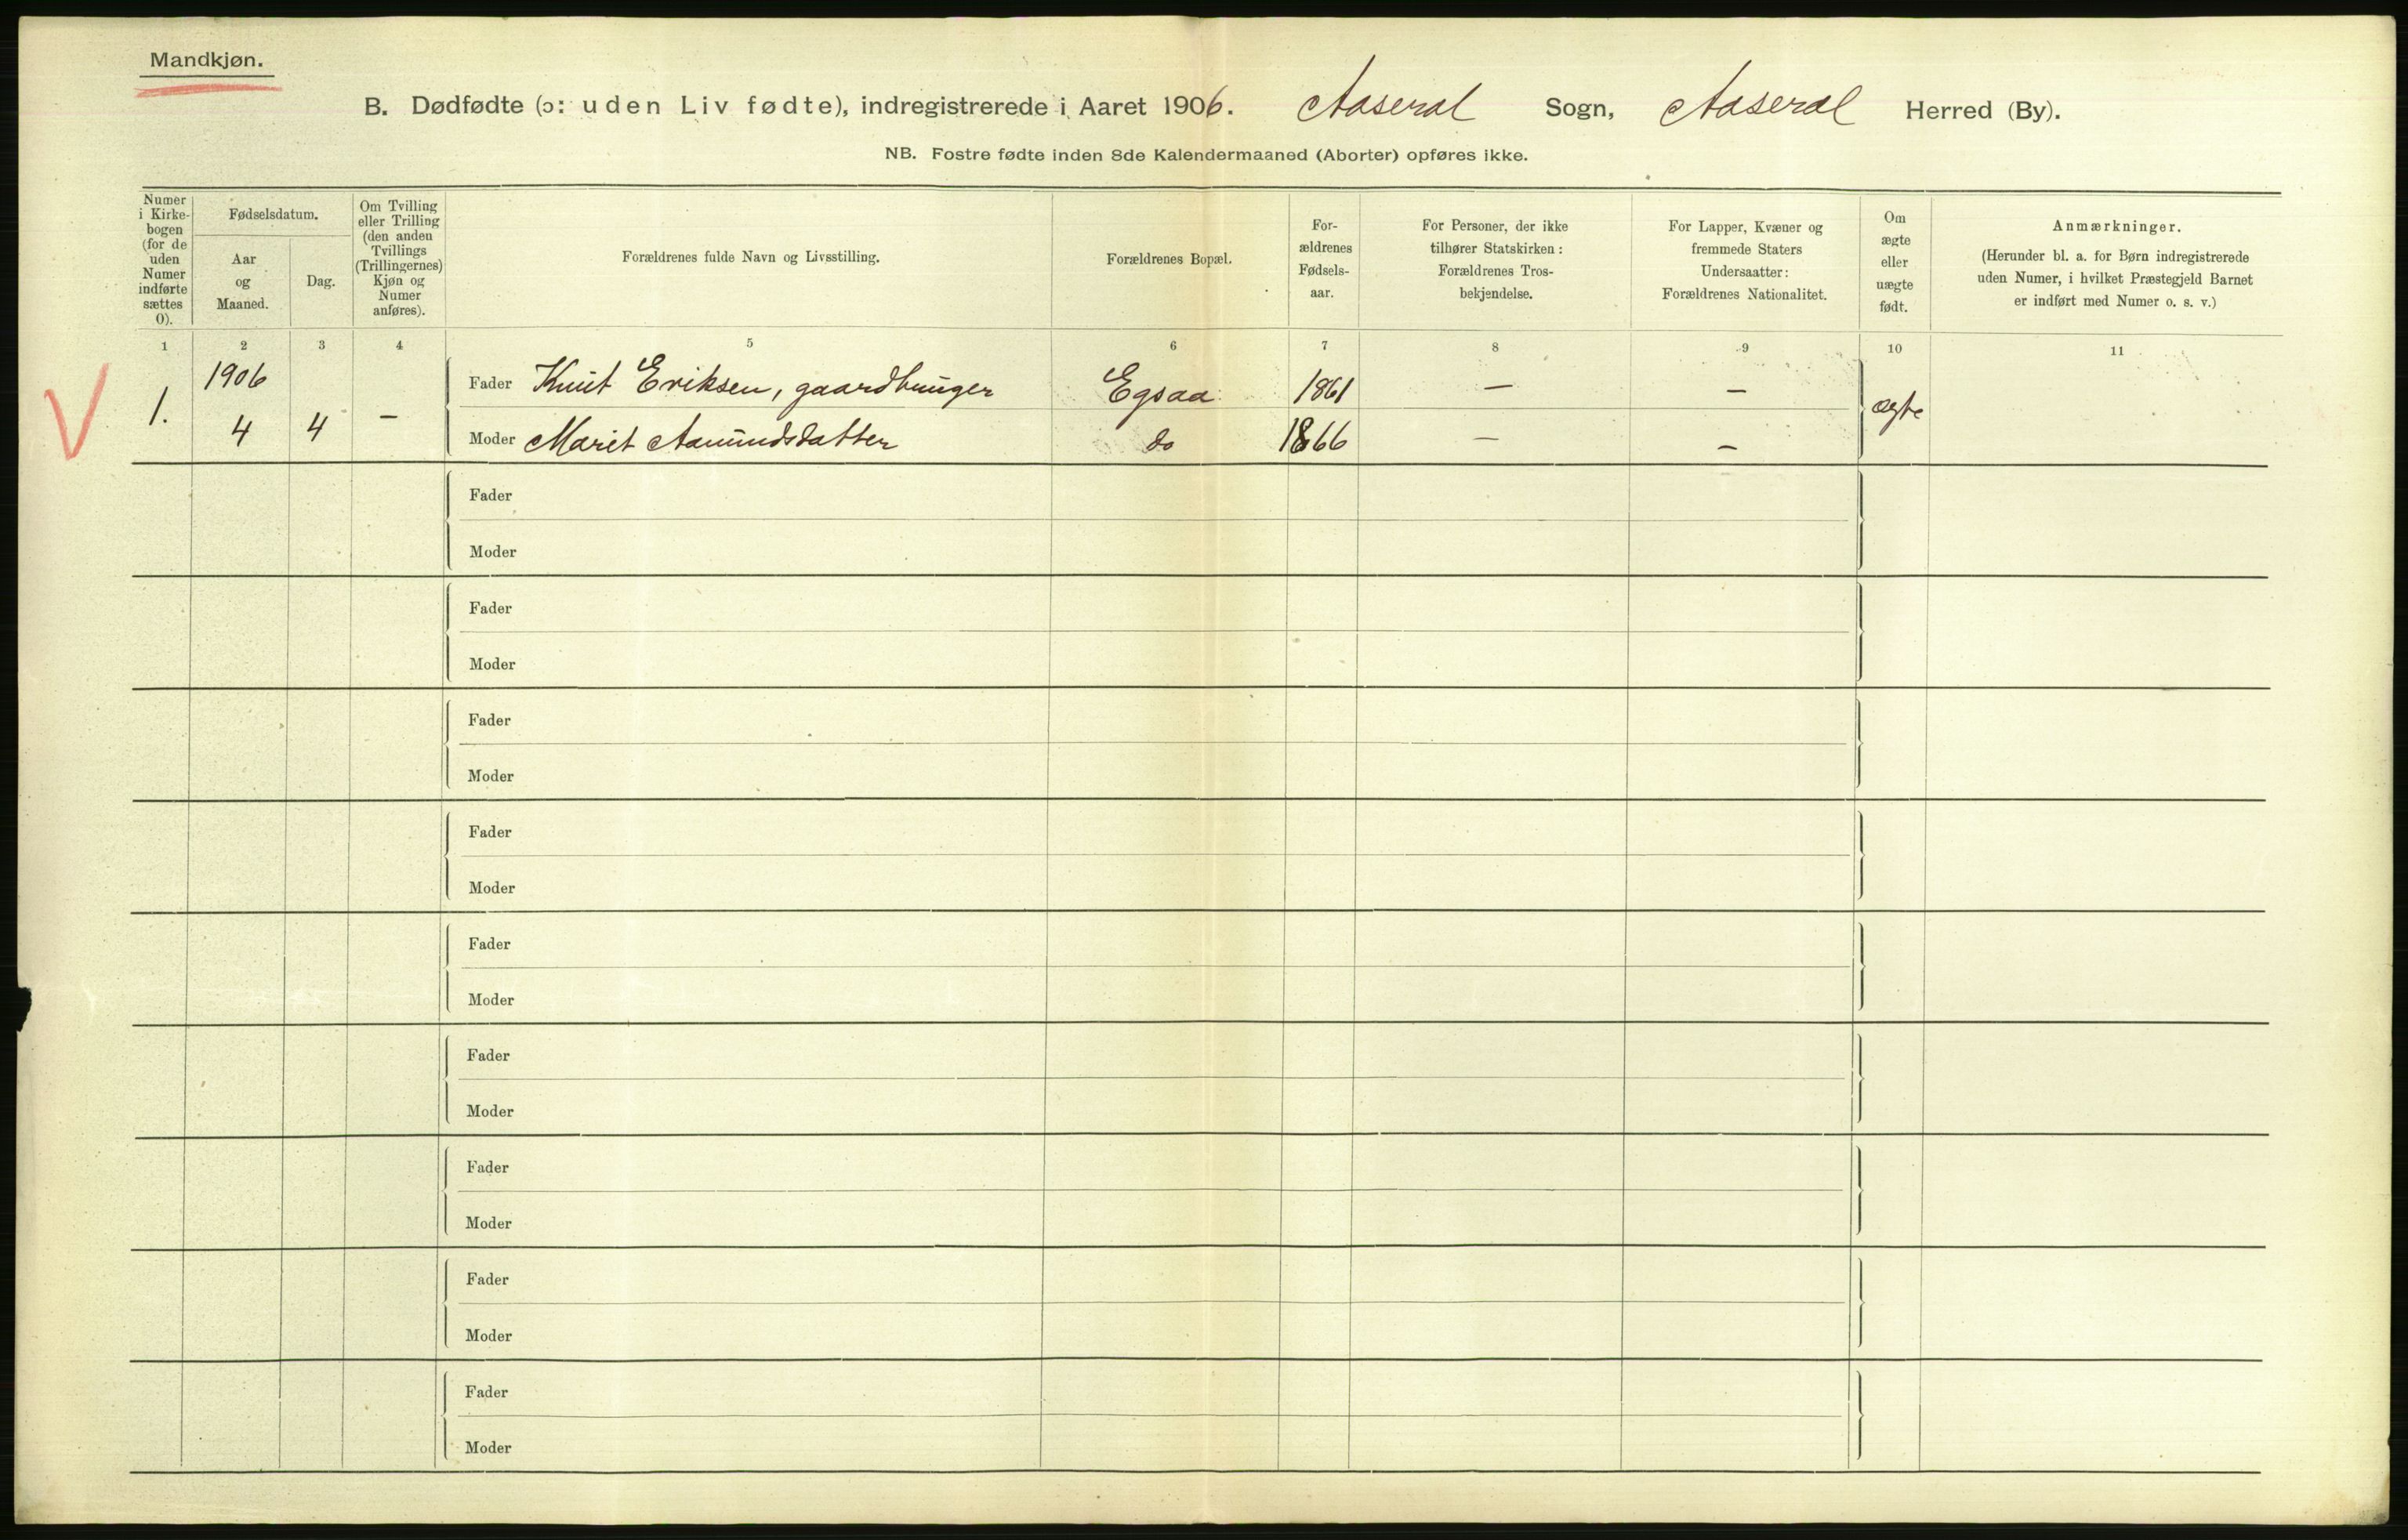 Mandkjøn.
B. Dødfødte (ɔ: uden Liv fødte), indregistrerede i Aaret 1906. Aaseral Sogn, Aaseral Herred (By).
NB. Fostre fødte inden 8de Kalendermaaned (Aborter) opføres ikke.
Numer
i Kirke-
bogen
(for de
uden
Numer
indførte
sættes
0).
Fødselsdatum.
Aar
og
Maaned.
Dag.
Om Tvilling
eller Trilling
(den anden
Tvillings
(Trillingernes)
Kjøn og
Numer
anføres).
Forældrenes fulde Navn og Livsstilling.
Forældrenes Bopæl.
For-
ældrenes
Fødsels-
aar.
For Personer, der ikke
tilhører Statskirken:
Forældrenes Tros-
bekjendelse.
For Lapper, Kvæner og
fremmede Staters
Undersaatter:
Forældrenes Nationalitet.
Om
ægte
eller
uægte
født.
Anmærkninger.
(Herunder bl. a. for Børn indregistrerede
uden Numer, i hvilket Præstegjeld Barnet
er indført med Numer o. s. v.)
1 2 3 4 5 6 7 8 9 10 11
1906
Fader Knut Eriksen, gaardbruger Egsaa 1861 — —
1. 4 4 — ægte
Moder Marit Aamundsdatter do 1866 — —
Fader
Moder
Fader
Moder
Fader
Moder
Fader
Moder
Fader
Moder
Fader
Moder
Fader
Moder
Fader
Moder
Fader
Moder